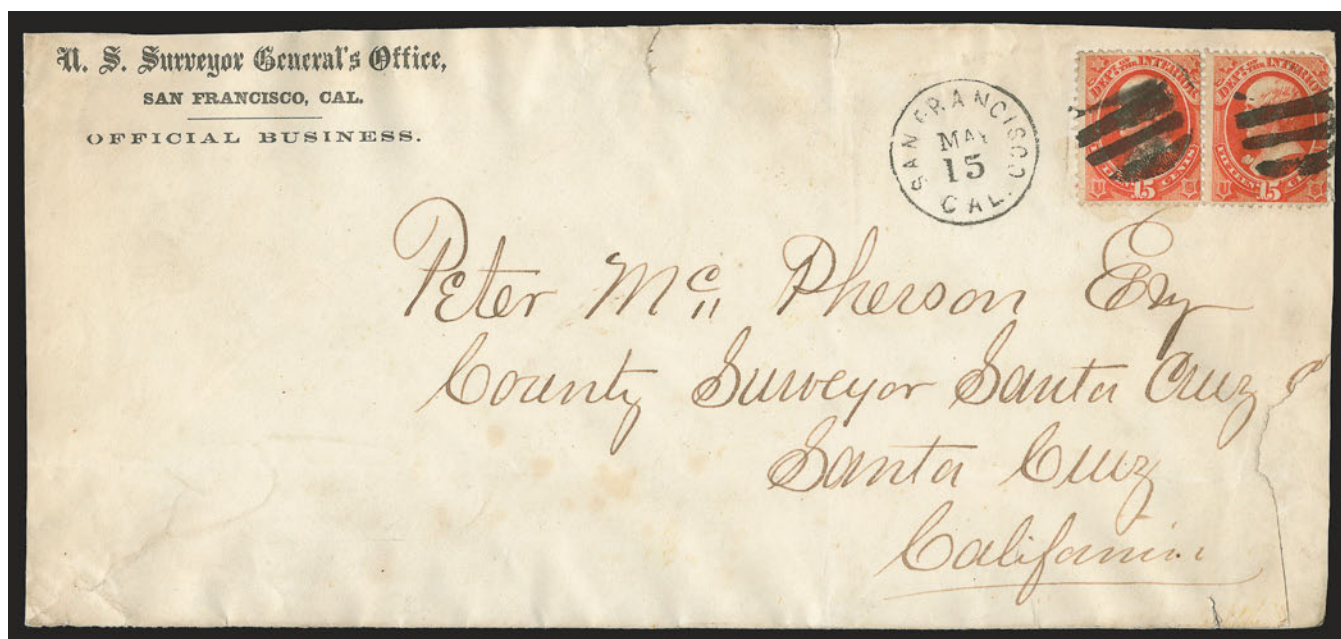 U. S. Surveyor General's Office,
SAN FRANCISCO, CAL.
OFFICIAL BUSINESS.
SAN FRANCISCO
MAY
15
CAL.
DEP'T OF THE INTERIOR
15 CENTS
U S
DEP'T OF THE INTERIOR
15 CENTS
U S
Peter Mc Pherson Esq
County Surveyor Santa Cruz Co
Santa Cruz
California